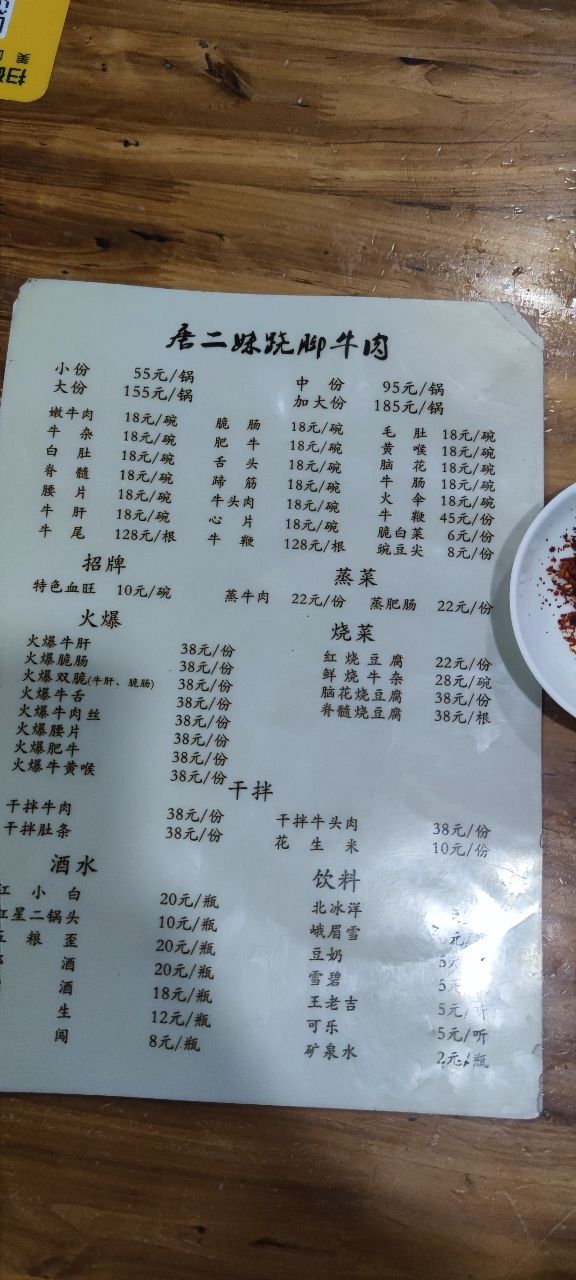 扫
美
唐二妹跷脚牛肉
小份 55元/锅 中份 95元/锅
大份 155元/锅 加大份 185元/锅
嫩牛肉 18元/碗 脆肠 18元/碗 毛肚 18元/碗
牛杂 18元/碗 肥牛 18元/碗 黄喉 18元/碗
白肚 18元/碗 舌头 18元/碗 脑花 18元/碗
脊髓 18元/碗 蹄筋 18元/碗 牛肠 18元/碗
腰片 18元/碗 牛头肉 18元/碗 火伞 18元/碗
牛肝 18元/碗 心片 18元/碗 牛鞭 45元/份
牛尾 128元/根 牛鞭 128元/根 脆白菜 6元/份
豌豆尖 8元/份
招牌
特色血旺 10元/碗
蒸菜
蒸牛肉 22元/份 蒸肥肠 22元/份
火爆
火爆牛肝 38元/份
火爆脆肠 38元/份
火爆双脆(牛肝、脆肠) 38元/份
火爆牛舌 38元/份
火爆牛肉丝 38元/份
火爆腰片 38元/份
火爆肥牛 38元/份
火爆牛黄喉 38元/份
烧菜
红烧豆腐 22元/份
鲜烧牛杂 28元/碗
脑花烧豆腐 38元/份
脊髓烧豆腐 38元/根
干拌
干拌牛肉 38元/份 干拌牛头肉 38元/份
干拌肚条 38元/份 花生米 10元/份
酒水
江小白 20元/瓶
红星二锅头 10元/瓶
五粮歪 20元/瓶
酒 20元/瓶
酒 18元/瓶
生 12元/瓶
闯 8元/瓶
饮料
北冰洋
峨眉雪
豆奶 5元
雪碧 5元
王老吉 5元/听
可乐 5元/听
矿泉水 2元/瓶